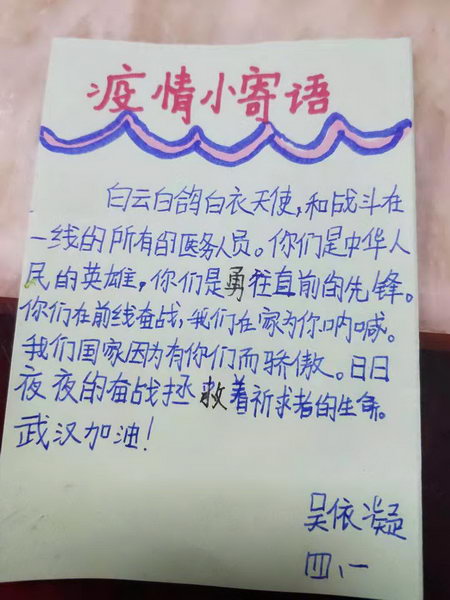 疫情小寄语
白云白鸽白衣天使,和战斗在
一线的所有的医务人员。你们是中华人
民的英雄,你们是勇往直前的先锋。
你们在前线奋战,我们在家为你呐喊。
我们国家因为有你们而骄傲。日日
夜夜的奋战拯救着祈求者的生命。
武汉加油!
吴依凝
四、一